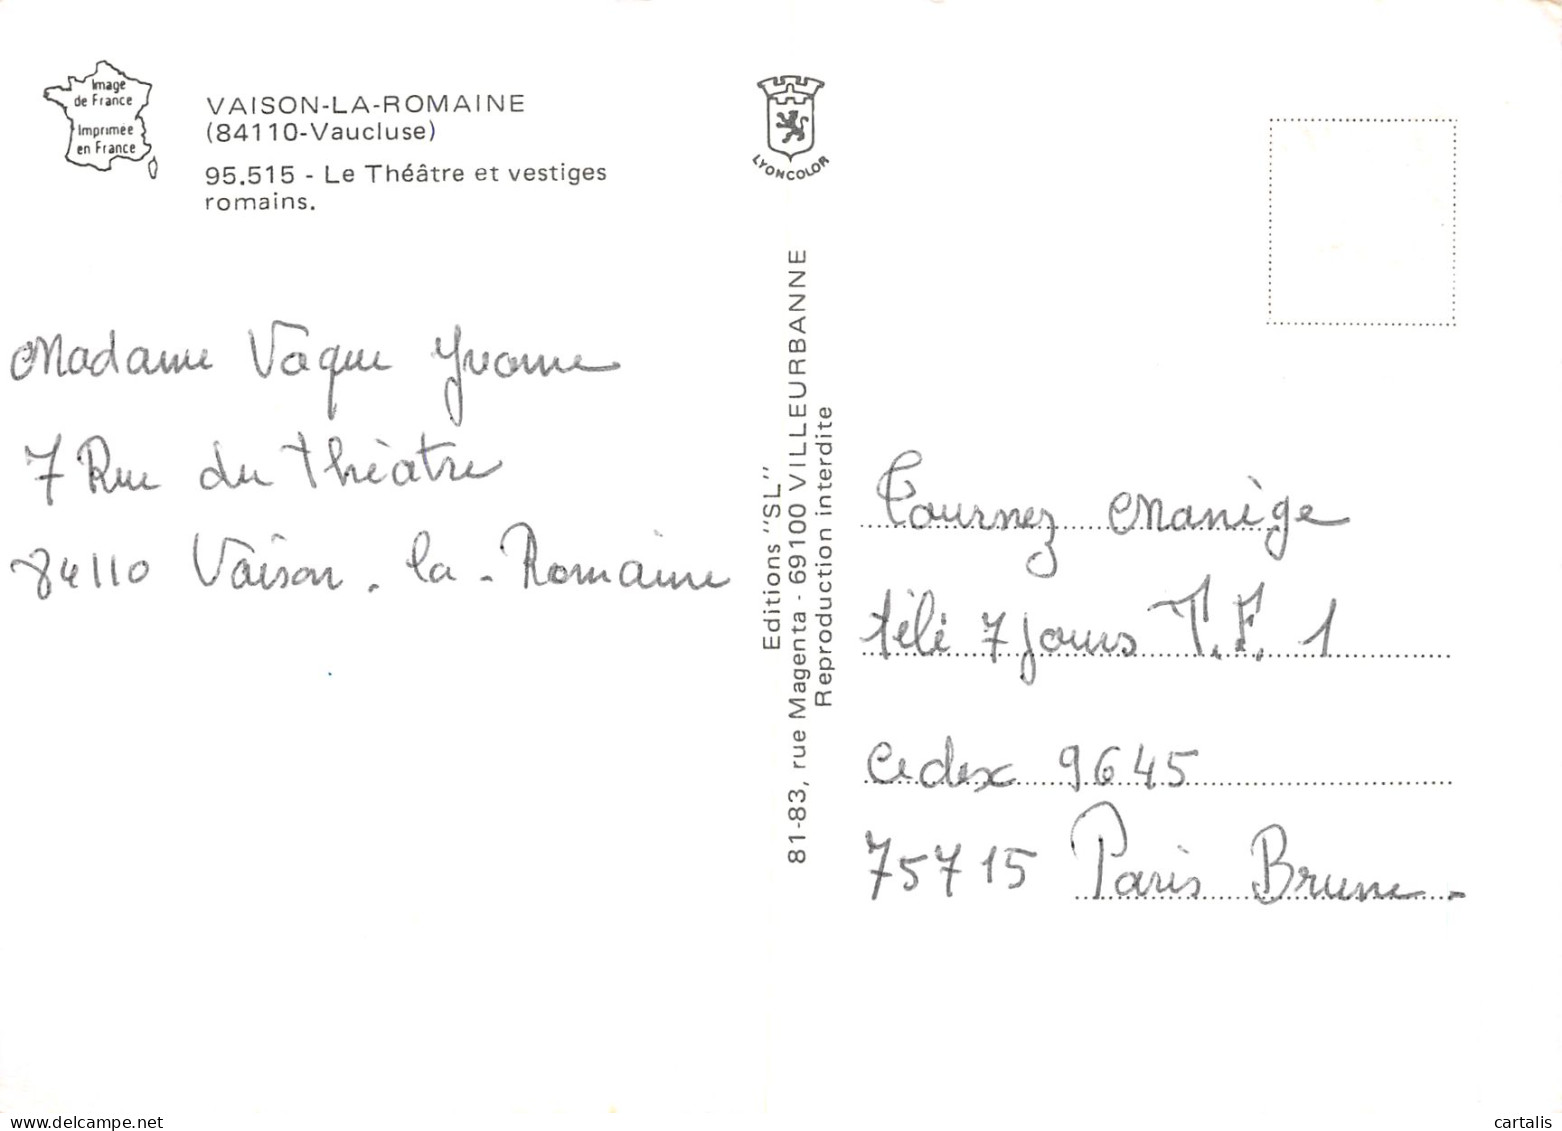 Image
de France
Imprimée
en France
VAISON-LA-ROMAINE
(84110-Vaucluse)
95.515 - Le Théâtre et vestiges
romains.
LYONCOLOR
Madame Vaque Yvonne
7 Rue du Théatre
84110 Vaison-la-Romaine
Editions "SL"
81-83, rue Magenta - 69100 VILLEURBANNE
Reproduction interdite
Tournez Manège
télé 7 jours T.F.1
Cedex 9645
75715 Paris Brune.
www.delcampe.net
cartalis